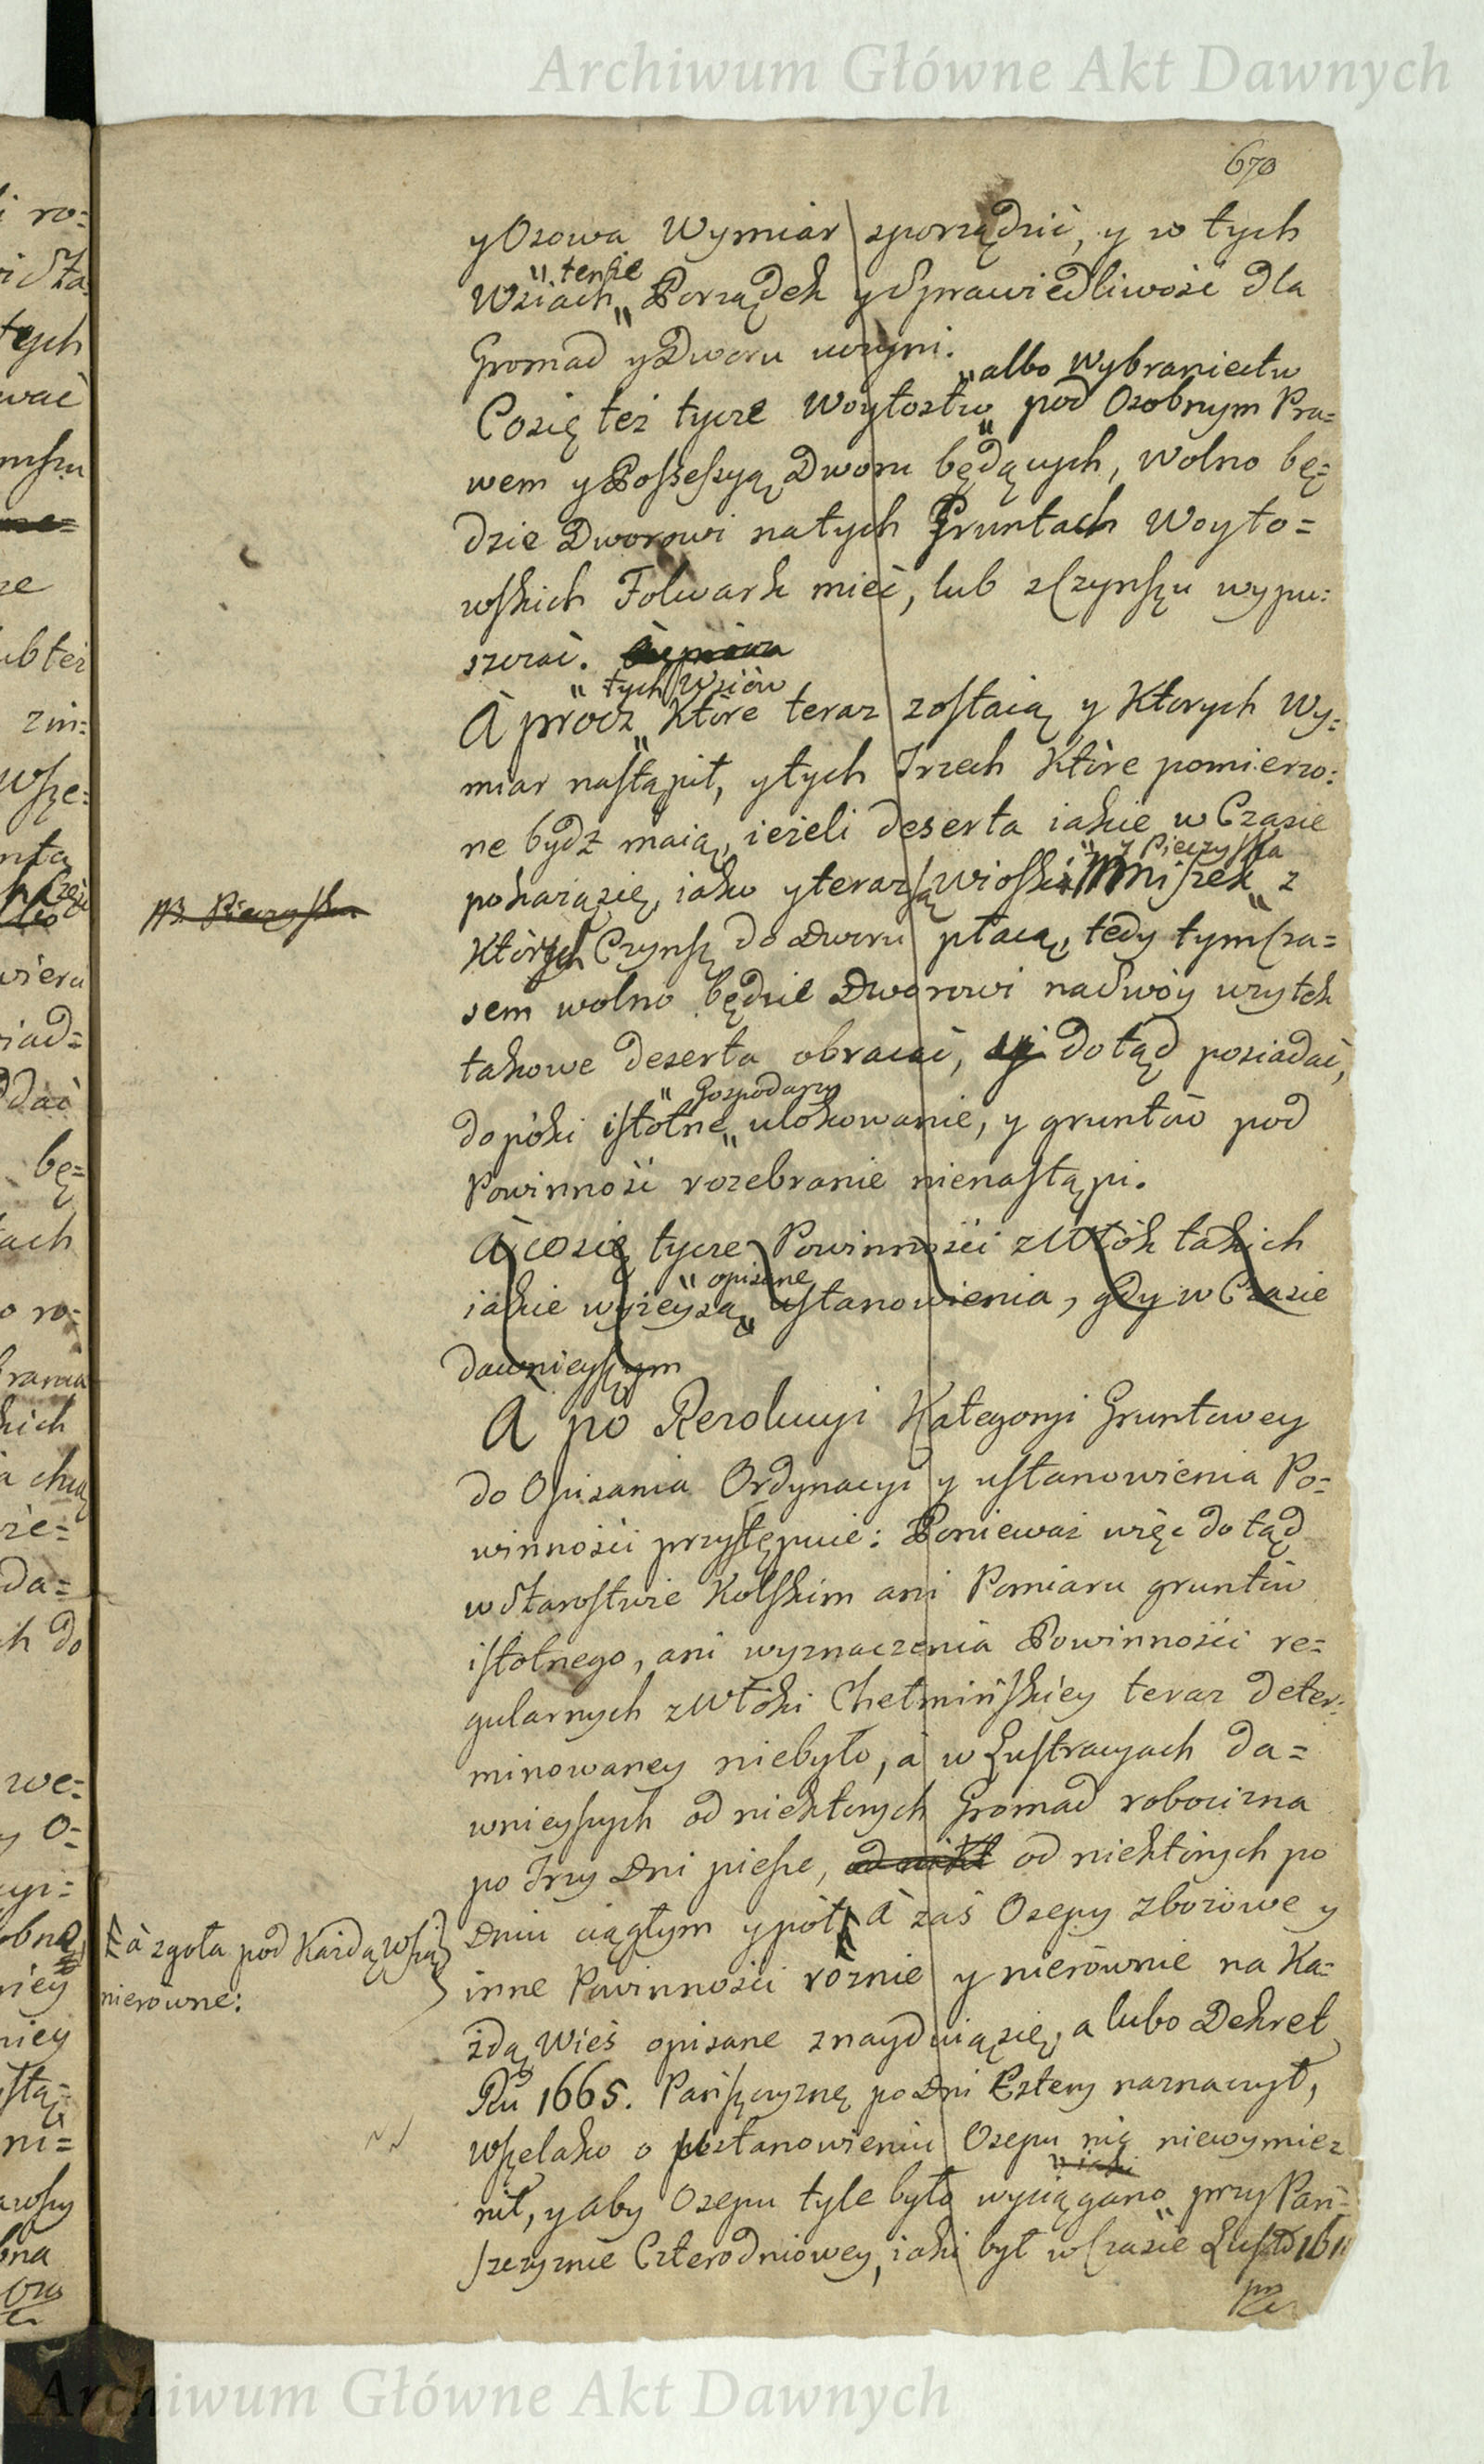 Archiwum Główne Akt Dawnych
670
y Osowa Wymiar sporządzić, y w tych
" tenże
Wsiach " Porządek y Sprawiedliwość dla
Gromad y Dworu uczyni.
" albo Wybraniectw
Co się też tycze Woytostw " pod Osobnym Pra=
wem y Possessyą Dworu będących, wolno bę=
dzie Dworowi na tych Gruntach Woyto=
wskich Folwark mieć, lub z Czynszu wypu=
szczać.
" tych Wsiów
A procz " Które teraz zostaią y Ktorych Wy=
miar nastąpił, y tych Trzech Które pomierzo=
ne bydz maią, ieżeli deserta iakie w Czasie
" y Pieczyska
pokażą się, iako y teraz są Wioski Mniszek " z
NB. Pieczyska
Których Czynsz do Dworu płacą, tedy tym cza=
sem wolno będzie Dworowi na Swóy uzytek
takowe deserta obracać, dotąd posiadać,
" Gospodarzy
dopóki istotne " ulokowanie, y gruntów pod
Powinność rozebranie nienastąpi.
A co się tycze Powinności z Włók takich
" opisane
iakie wyżey są " ustanowienia, gdy w Czasie
dawnieyszym
A po Rezolucyi Kategoryi Gruntowey
do Opisania Ordynacyi y ustanowienia Po=
winności przystępuie: Ponieważ więc dotąd
w Starostwie Kolskim ani Pomiaru gruntów
istotnego, ani wyznaczenia Powinności re=
gularnych z Włóki Chełmińskiey teraz deter=
minowaney niebyło, à w Lustracyach da=
wnieyszych od niektorych Gromad robocizna
po Trzy Dni piesze, od niektórych po
Dniu ciągłym y pół, A zaś Osepy zbożowe y
à zgoła pod Każdą Wsią
nierowne:
inne Powinności rożnie y nierównie na Ka=
żdą Wieś opisane znayduią się, a lubo Dekret
Ru 1665. Pańszczyznę po Dni Cztery naznaczył,
wszelako o postanowieniu Osepu nic niewymie=
" iaki
nił, y aby Osepu tyle było wyciągano " przy Pań=
szczyznie Czterodniowey, iaki był w Czasie
Archiwum Główne Akt Dawnych